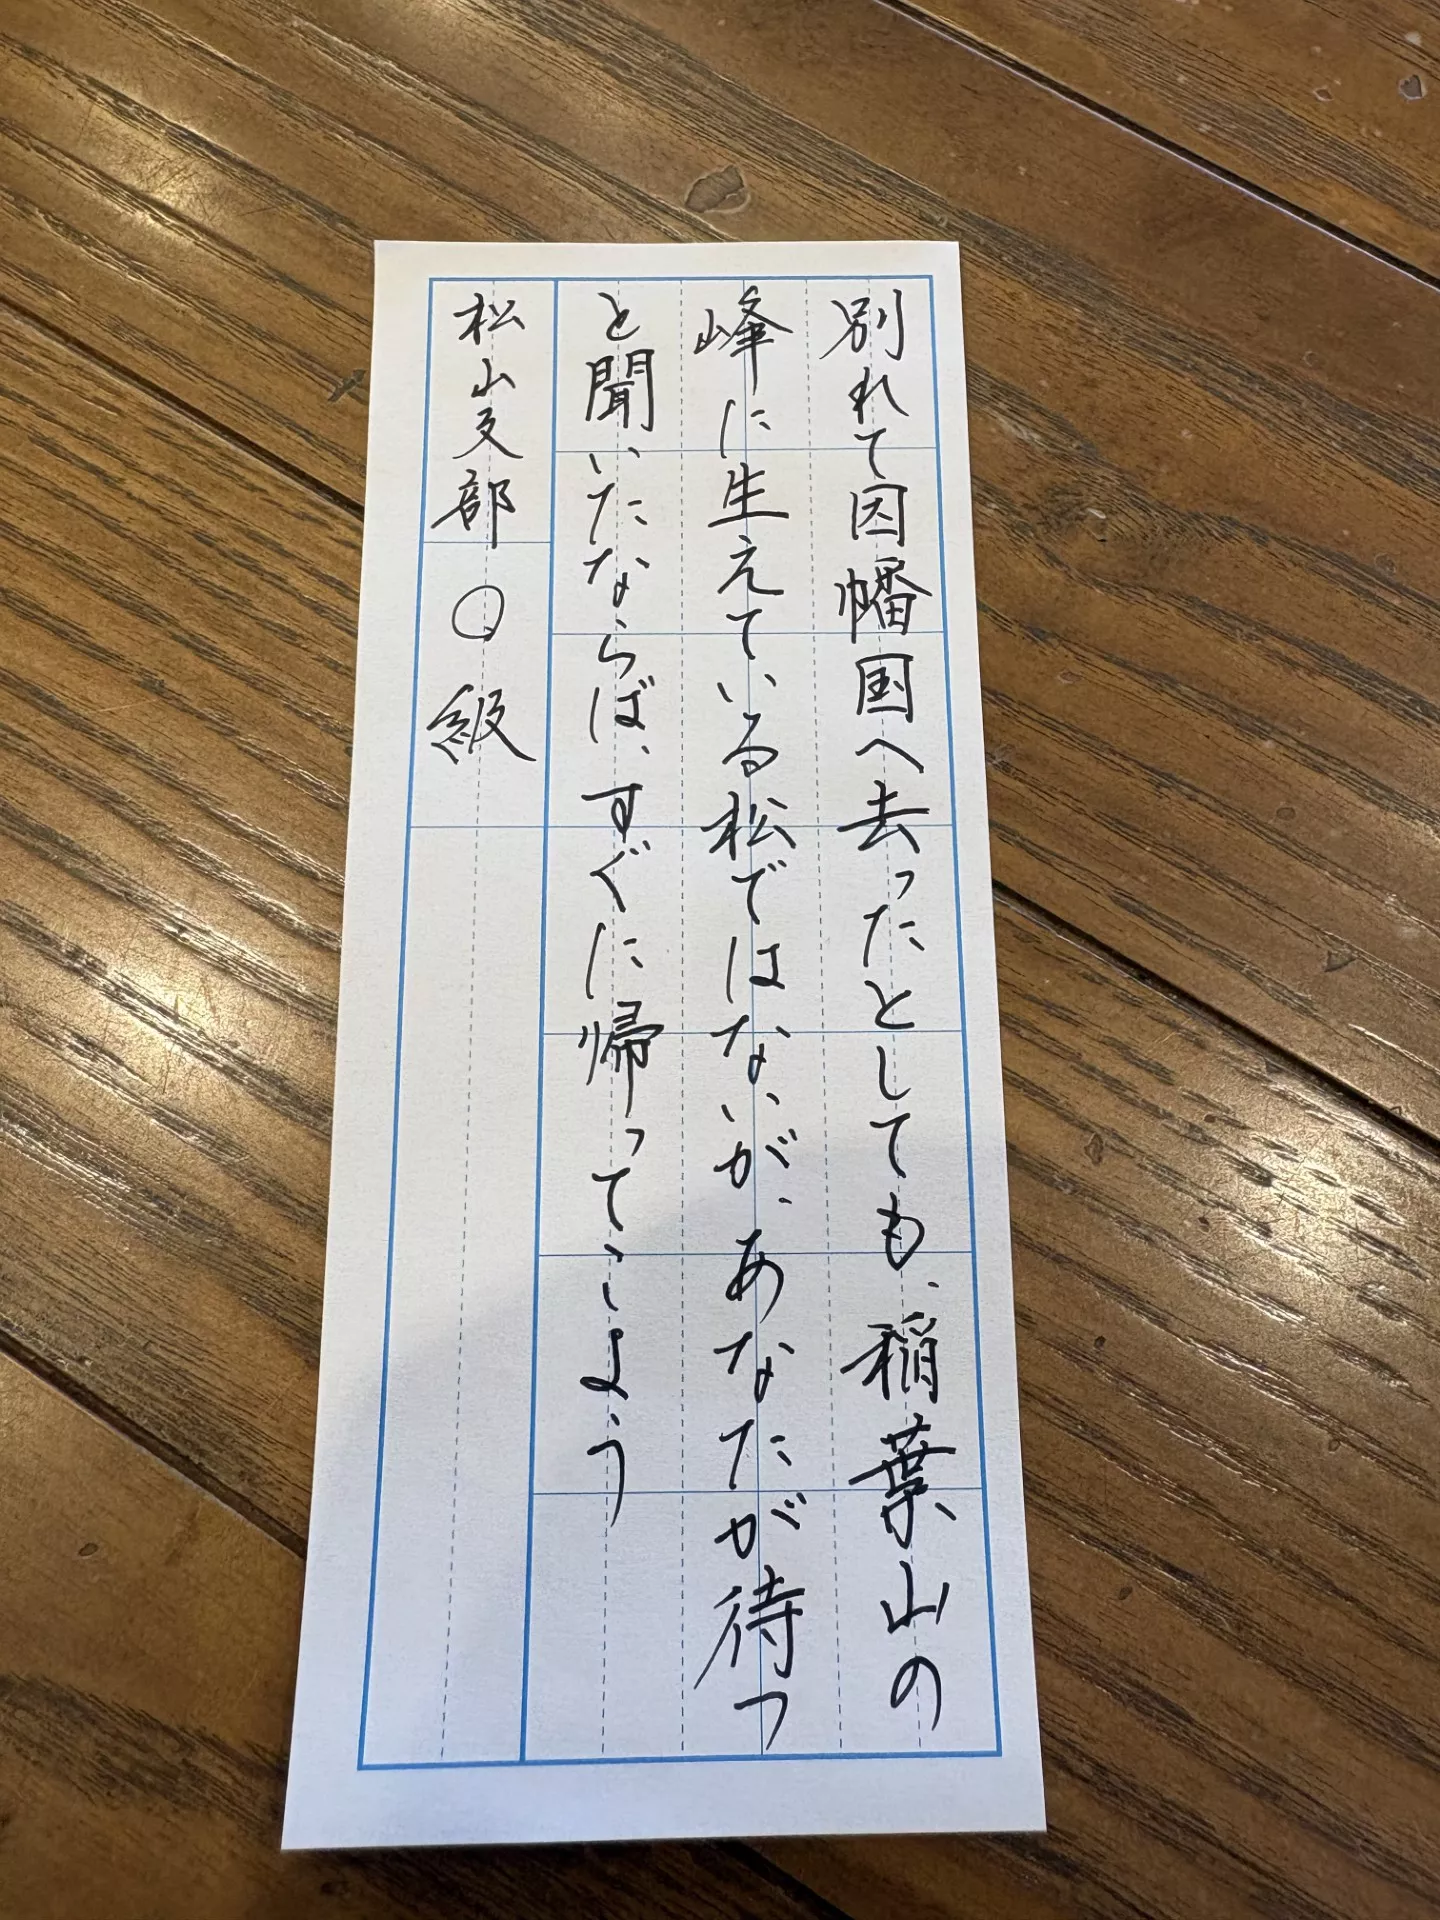 別れて因幡国へ去ったとしても、稲葉山の
峰に生えている松ではないが、あなたが待つ
と聞いたならば、すぐに帰ってこよう
松山支部 〇級